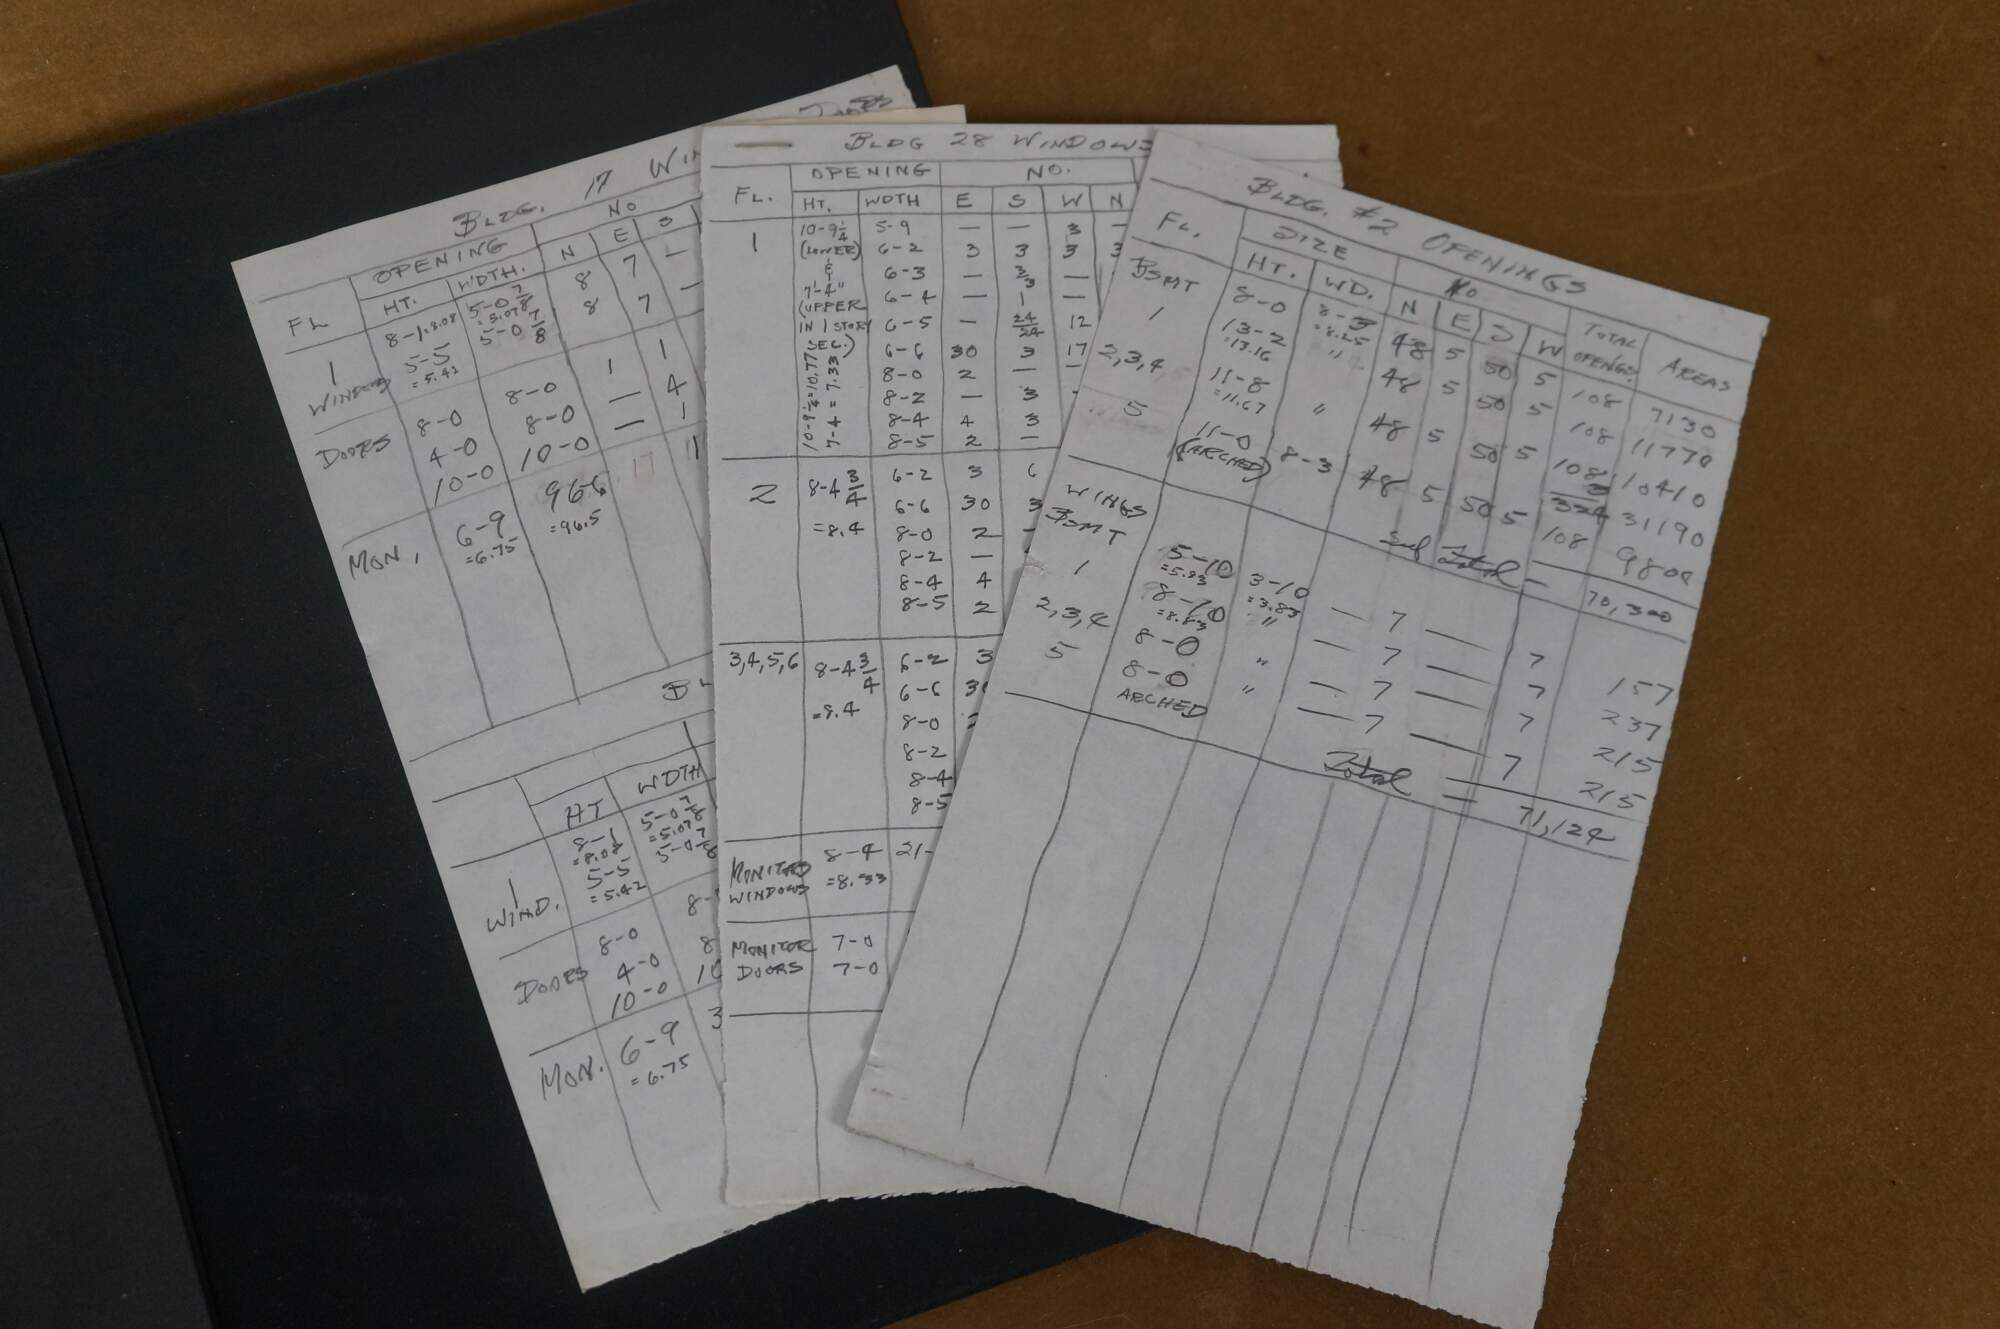 DOORS
BLDG. 17 WIN
OPENING NO
FL HT. WDTH. N E S
1 8-1 = 8.08 5-0 7/8 = 5.07 8 7 —
WINDOWS 5-5 = 5.42 5-0 7/8 8 7 —
DOORS 8-0 8-0 1 1
4-0 8-0 — 4
10-0 10-0 — 1
MON. 6-9 96-6 17 11
=6.75 =96.5
BL
HT WDTH
1 8-1 5-0 7/8
=8.08 =5.07
WIND. 5-5 5-0 7/8
=5.42
DOORS 8-0 8-
4-0 8
10-0 10
MON. 6-9 3
=6.75
BLDG 28 WINDOWS
OPENING NO.
FL. HT. WDTH E S W N
1 10-9 1/4 5-9 — — 3 —
(LOWER) 6-2 3 3 3 3
& 6-3 — 3/3 —
7'-4" 6-4 — 1 —
(UPPER
IN 1 STORY 6-5 — 24/24 12
SEC.) 6-6 30 3 17
10-9 1/4 = 10.77 8-0 2 — —
7-4 = 7.33 8-2 — 3
8-4 4 3
8-5 2 —
2 8-4 3/4 6-2 3 6
6-6 30 3
=8.4 8-0 2 —
8-2 —
8-4 4
8-5 2
3,4,5,6 8-4 3/4 6-2 3
6-6 30
=8.4 8-0 2
8-2
8-4
8-5
MONITOR 8-4 21-
WINDOWS =8.33
MONITOR 7-0
DOORS 7-0
BLDG. #2 OPENINGS
FL. SIZE NO TOTAL OPENGS. AREAS
HT. WD. N E S W
BSMT 8-0 8-3 = 8.25 48 5 50 5 108 7130
1 13-2 = 13.16 " 48 5 50 5 108 11770
2,3,4 11-8 = 11.67 " 48 5 50 5 108 10410
3
324 31190
5 11-0 8-3 48 5 50 5 108 9800
(ARCHED)
Sub Total — 70,300
WINGS
BSMT 5-10 = 5.83 3-10 = 3.83 — 7 — 7 157
1 8-10 = 8.83 " — 7 — 7 237
2,3,4 8-0 " — 7 — 7 215
5 8-0 " — 7 — 7 215
ARCHED
Total = 71,124